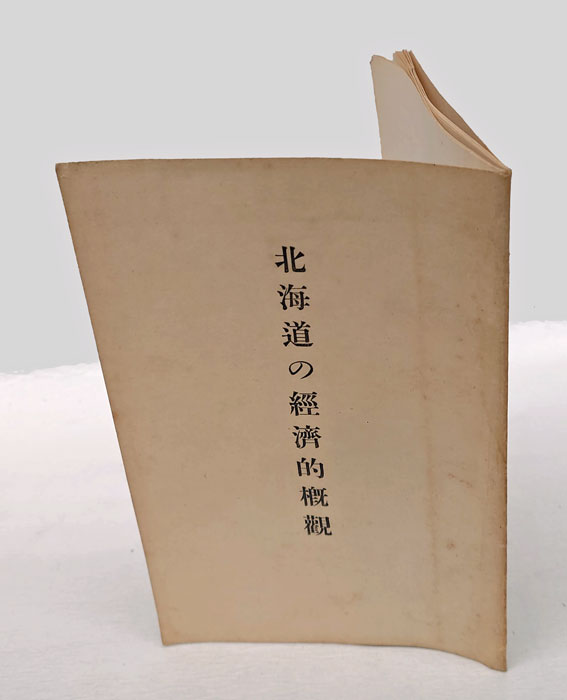 北海道の經濟的概觀